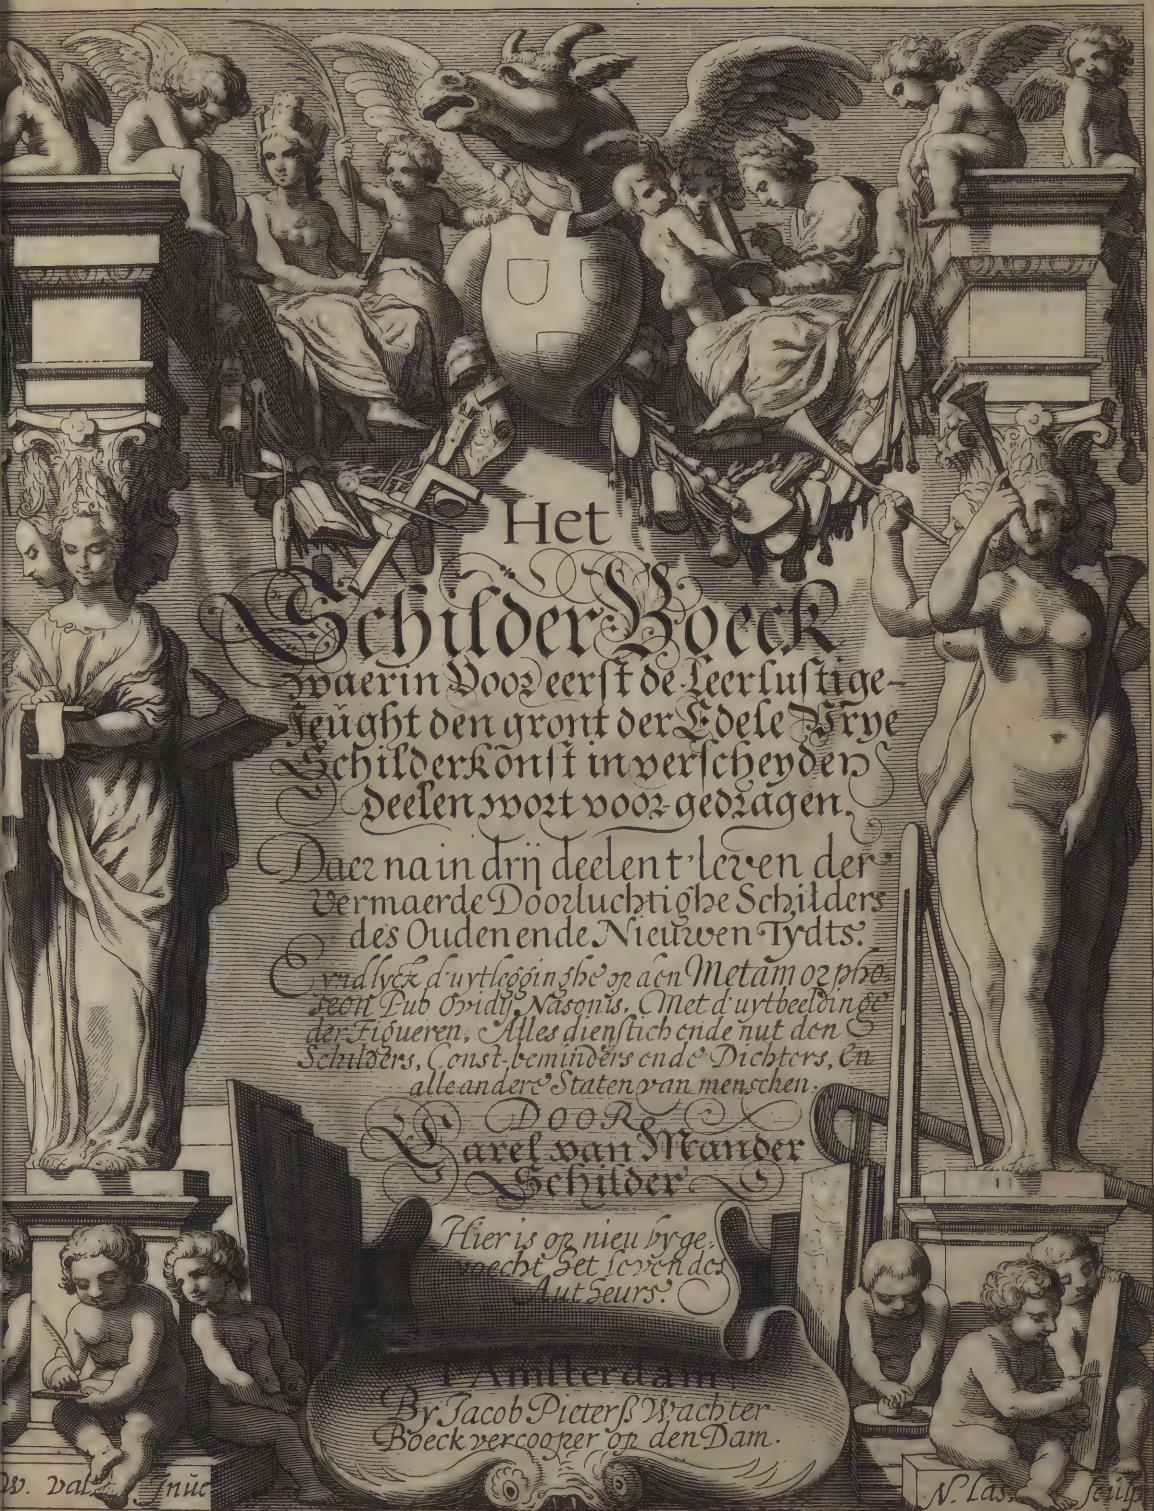 Het
Schilder Boeck
waerin Voor eerst de leerlustige-
Jeught den gront der Edele Vrye
Schilderkonst in verscheyden
deelen wort voor gedragen.
Daer na in drij deelen t'leven der
vermaerde Doorluchtighe Schilders
des Ouden ende Nieuwen Tydts.
Eyndlyck d'uytlegginghe op den Metamorpho-
seon Pub Ovidij Nasonis. Met d'uytbeeldinge
der Figueren. Alles dienstich ende nut den
Schilders, Const-beminders ende Dichters, En
alle andere Staten van menschen.
DOOR
Carel van Mander
Schilder
Hier is op nieu byge-
voecht het leven des
Autheurs.
t'Amsterdam
By Jacob Pieterß Wachter
Boeckvercooper op den Dam.
W. val Inue
N. Las Sculp